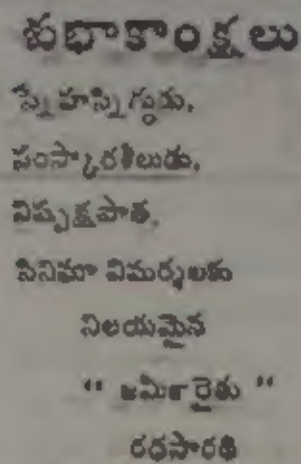 శుభాకాంక్షలు
స్నేహస్నిగ్ధుడు,
సంస్కారశీలుడు,
నిష్పక్షపాత,
సినిమా విమర్శలకు
నిలయమైన
“ జమీన్ రైతు ”
రథసారథి